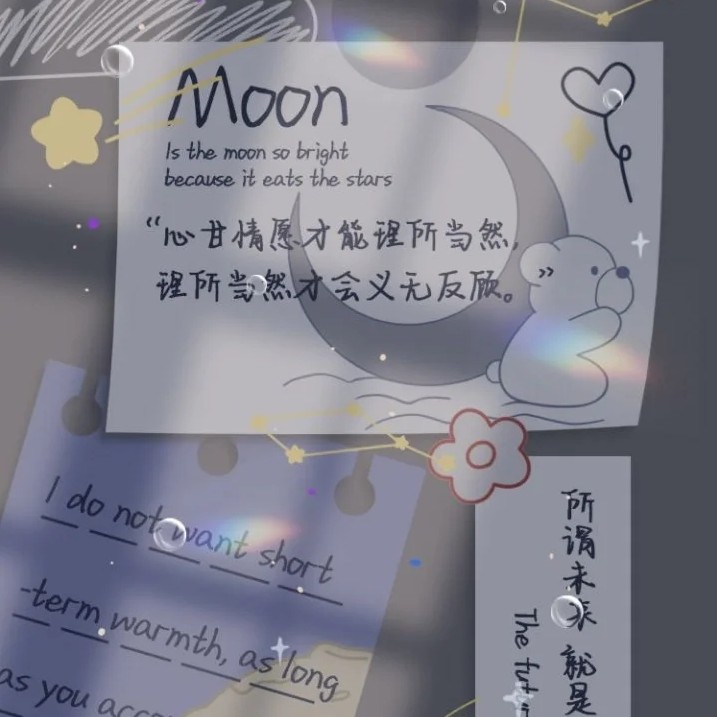 Moon
Is the moon so bright
because it eats the stars
“心甘情愿才能理所当然，
理所当然才会义无反顾。”
I do not want short
-term warmth, as long
as you
所谓未来就是
The